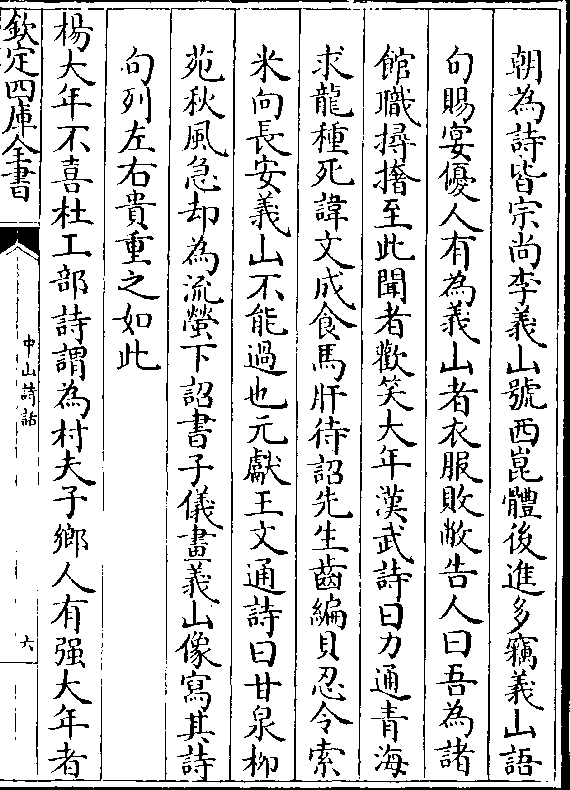 朝為詩皆宗尚李義山號西崑體後進多竊義山語
句賜宴優人有為義山者衣服敗敝告人曰吾為諸
館職撏撦至此聞者歡笑大年漢武詩曰力通青海
求龍種死諱文成食馬肝待詔先生齒編貝忍令索
米向長安義山不能過也元獻王文通詩曰甘泉柳
苑秋風急却為流螢下詔書子儀畫義山像寫其詩
句列左右貴重之如此
楊大年不喜杜工部詩謂為村夫子鄉人有强大年者
欽定四庫全書
中山詩話
六